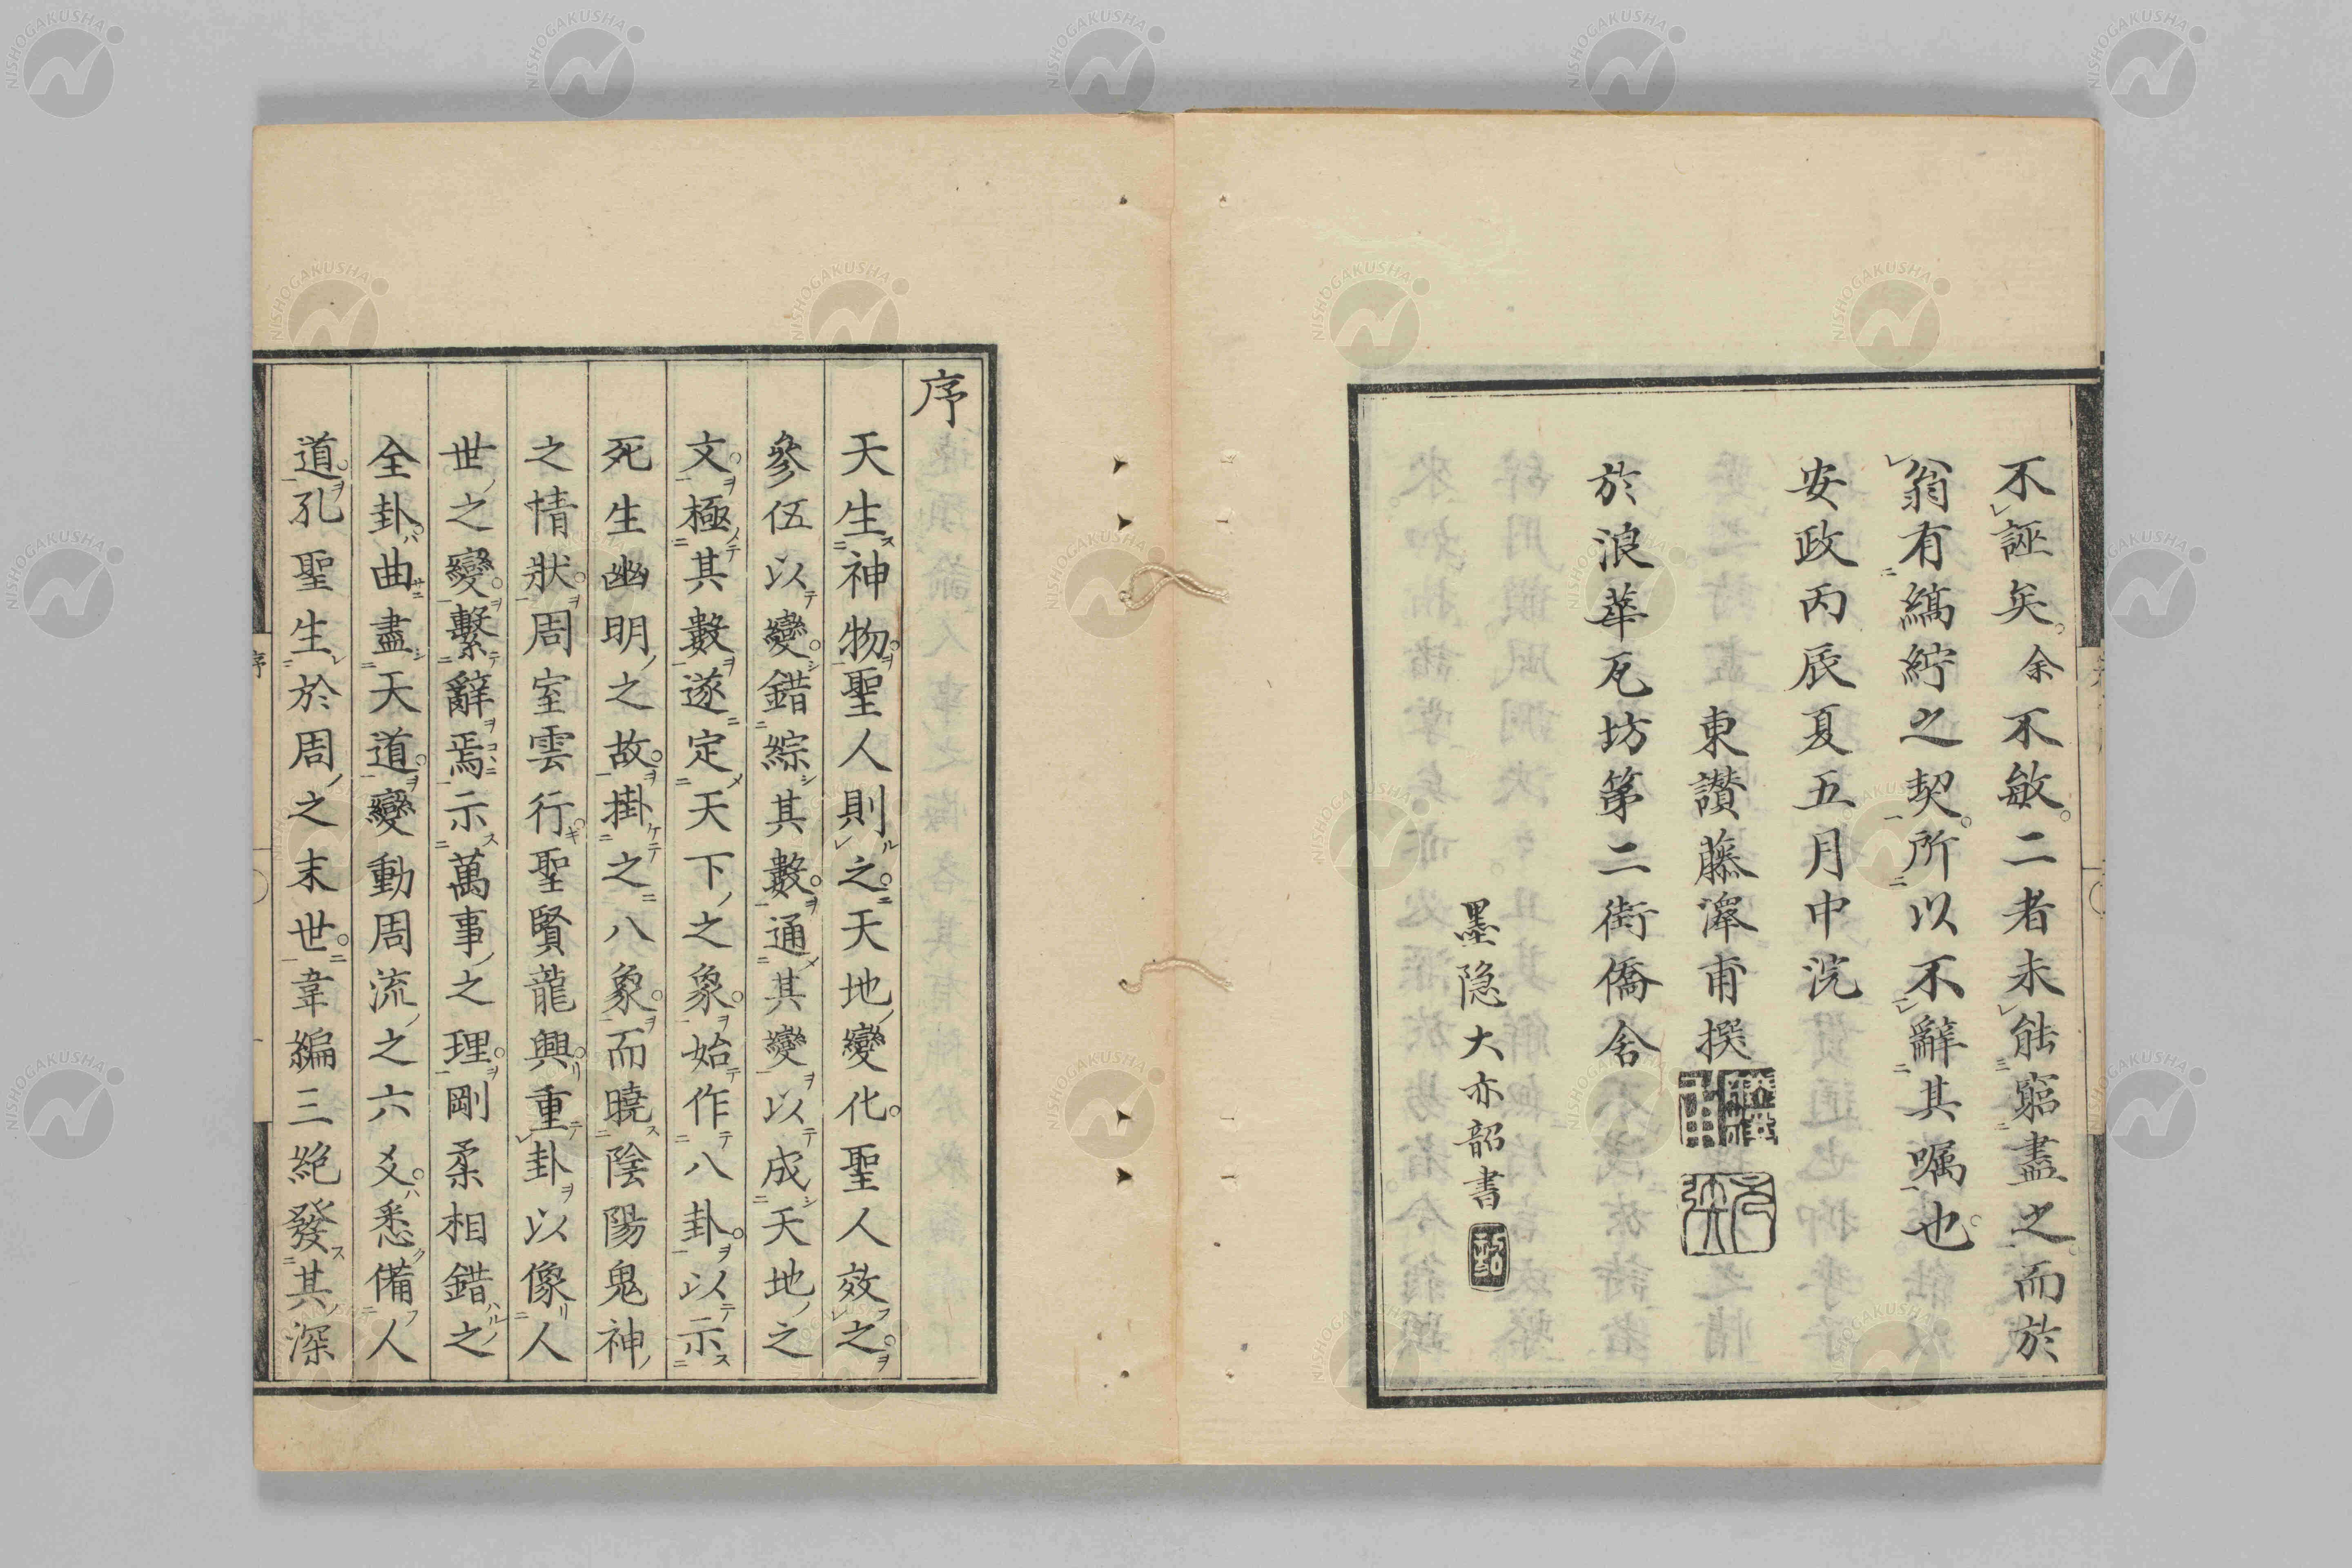 不誣矣余不敏二者未能窮盡之而於
翁有縞紵之契所以不辭其嘱也
安政丙辰夏五月中浣
東讃藤澤甫撰
於浪華瓦坊第二街僑舍
墨隐大亦韶書
序
天生神物聖人則之天地變化聖人效之
參伍以變錯綜其數通其變以成天地之
文極其數遂定天下之象始作八卦以示
死生幽明之故掛之八象而曉陰陽鬼神
之情狀周室雲行聖賢龍興重卦以像人
世之變繫辭焉示萬事之理剛柔相錯之
全卦曲盡天道變動周流之六爻悉備人
道孔聖生於周之末世韋編三絶發其深
序
NISHOGAKUSHA